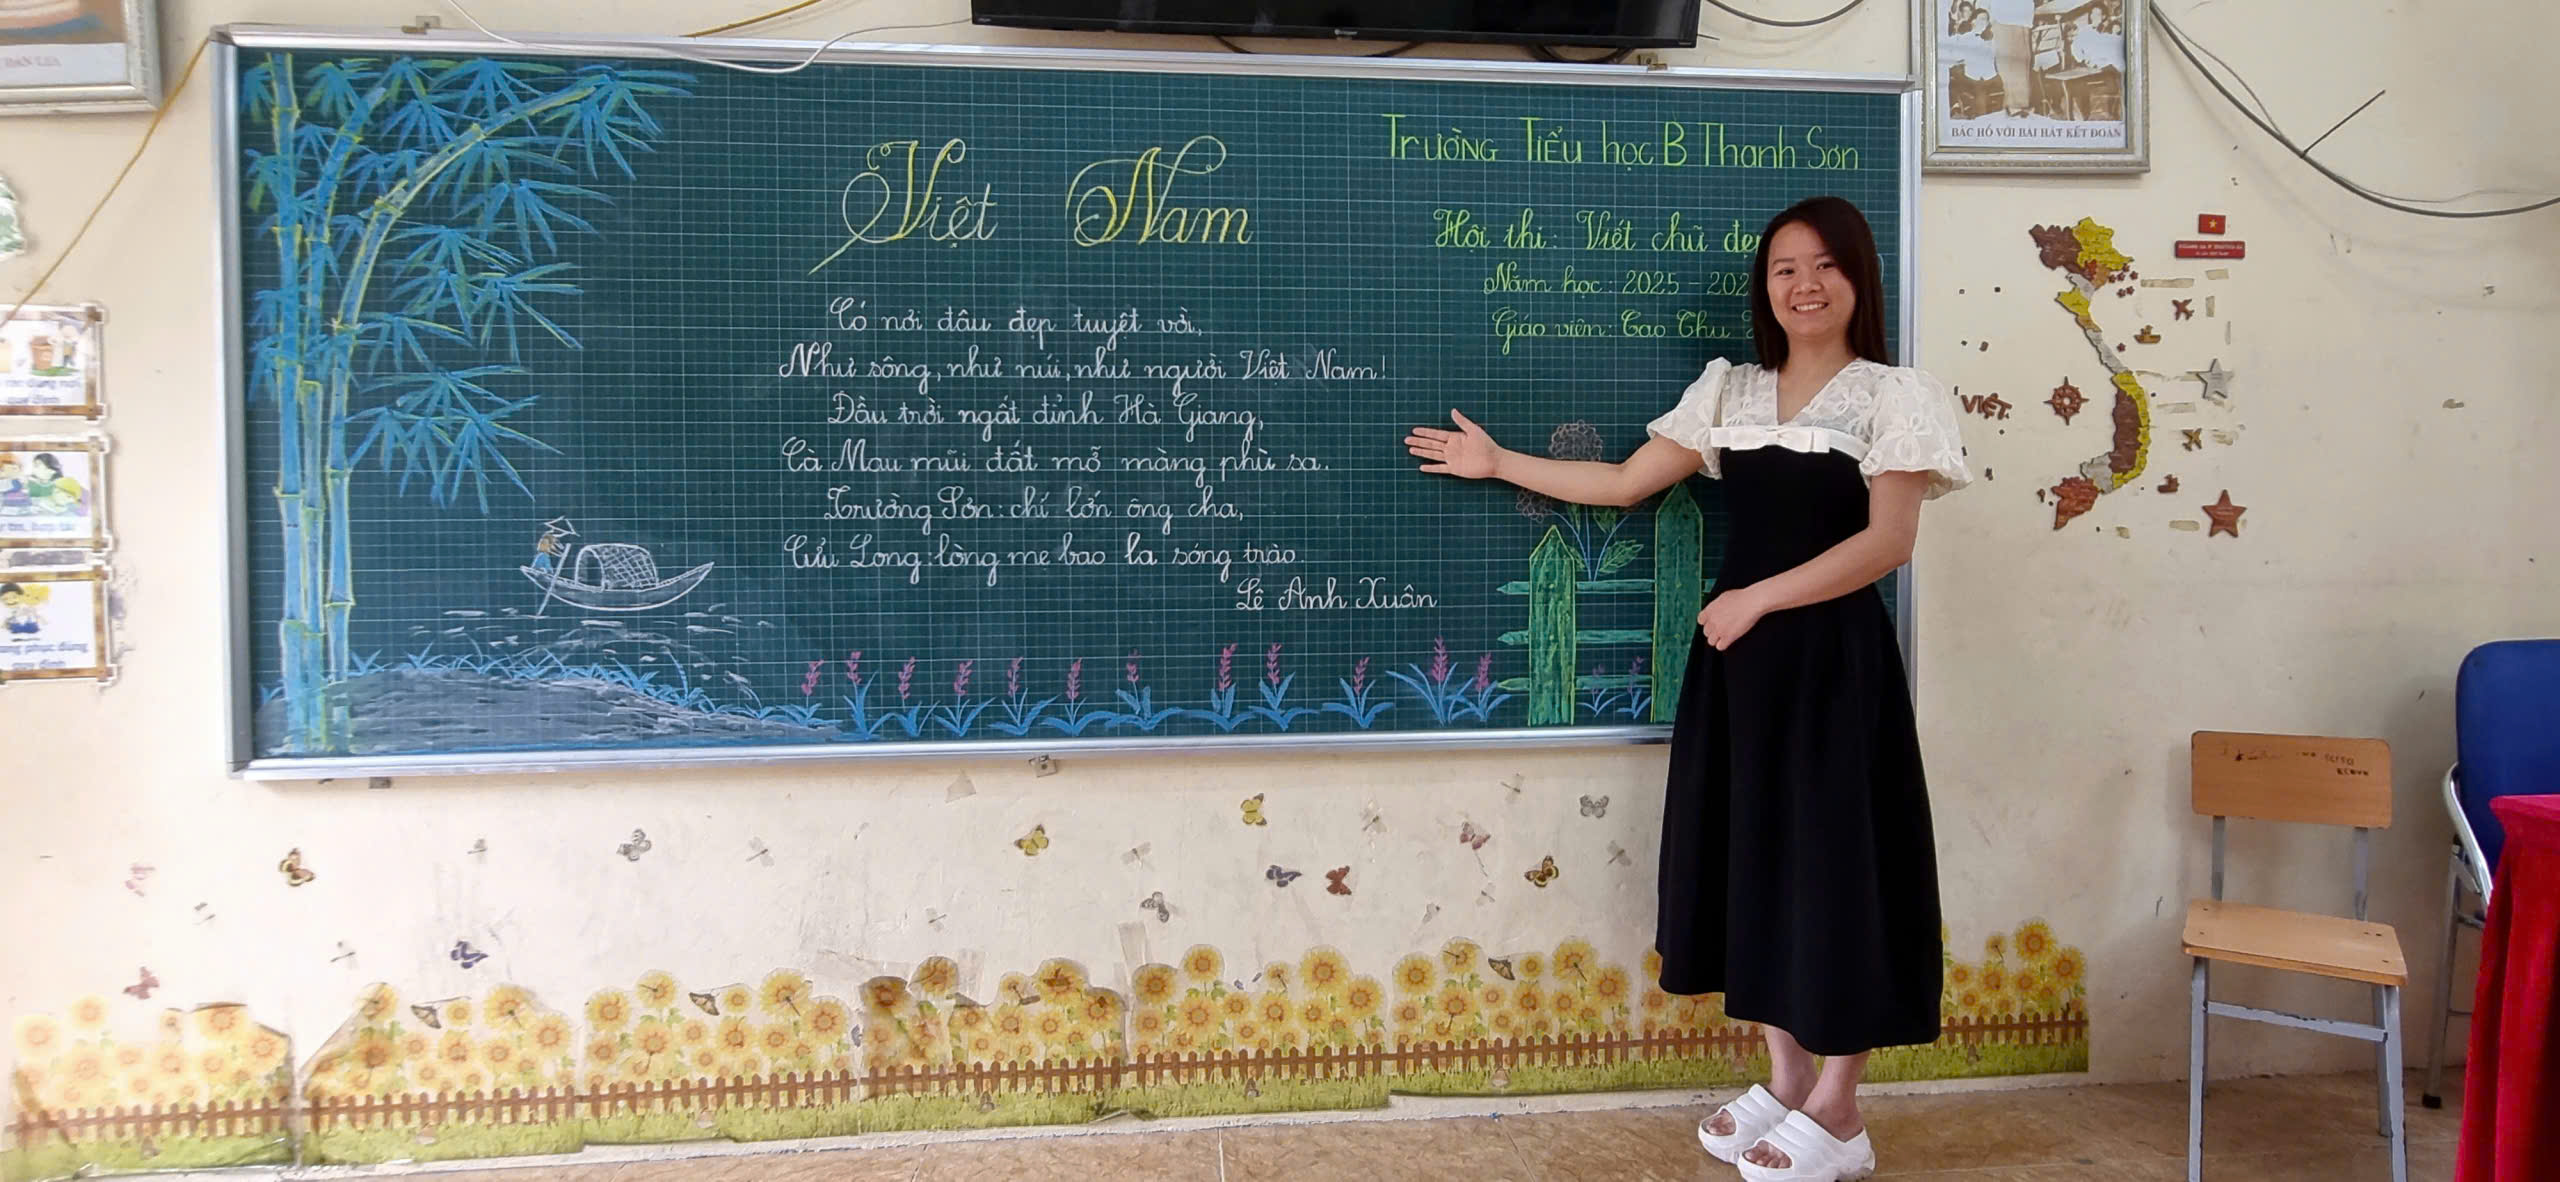 Việt Nam
Có nơi đâu đẹp tuyệt vời,
Như sông, như núi, như người Việt Nam!
Đầu trời ngất đỉnh Hà Giang,
Cà Mau mũi đất mỡ màng phù sa.
Trường Sơn: chí lớn ông cha,
Cửu Long: lòng mẹ bao la sóng trào.
Lê Anh Xuân
Trường Tiểu học B Thanh Sơn
Hội thi: Viết chữ đẹp
Năm học: 2025 - 202
Giáo viên: Cao Thu
BÁC HỒ VỚI BÀI HÁT KẾT ĐOÀN
VIỆT